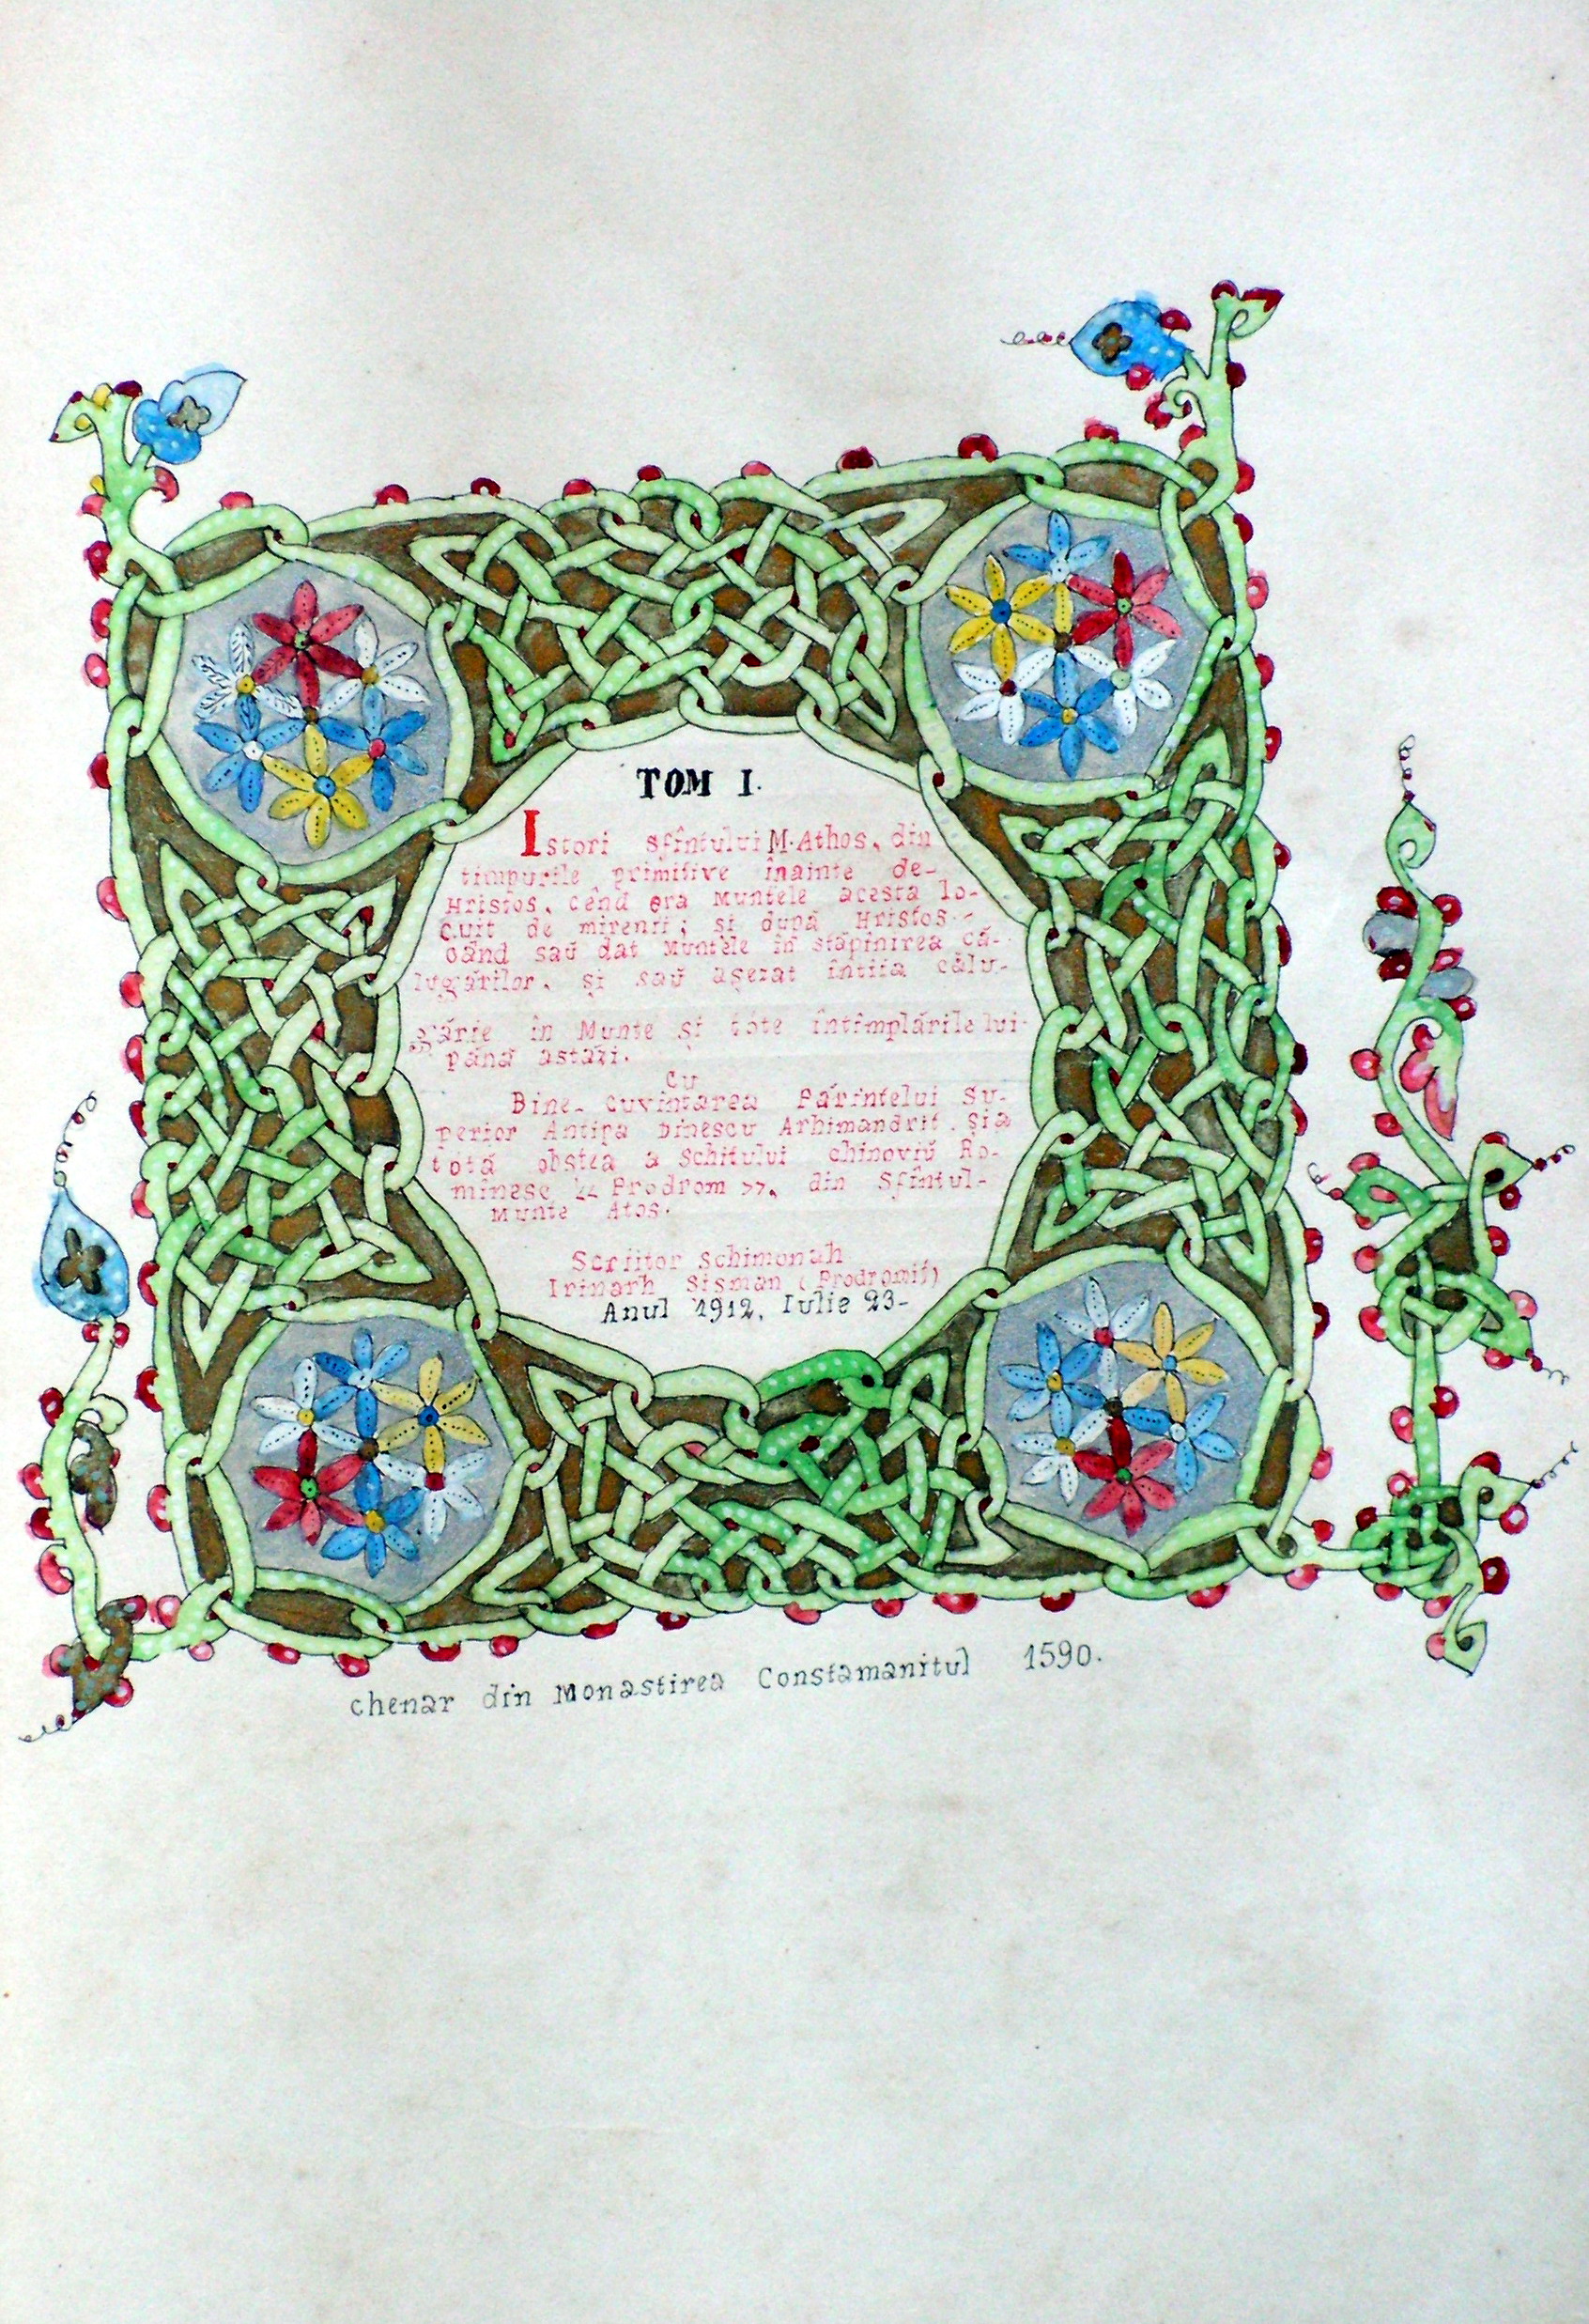 TOM I.
Istori sfîntului M. Athos, din
timpurile primitive înainte de-
Hristos, cênd era Muntele acesta lo-
cuit de mirenii; si după Hristos -
când saŭ dat Muntele în stăpînirea că-
lugărilor, și saŭ așezat întiia călu-
gărie în Munte și tóte întîmplările lui
pănă astazi.
Cu
Bine- cuvintarea Părintelui Su-
perior Antipa Dinescu Arhimandrit. Și a
tótă obstea a Schitului chinoviŭ Ro-
mînesc << Prodrom >>, din Sfîntul-
Munte Atos.
Scriitor Schimonah
Irinarh Sisman (Prodromit)
Anul 1912, Iulie 23-
chenar din Monastirea Constamanitul 1590.